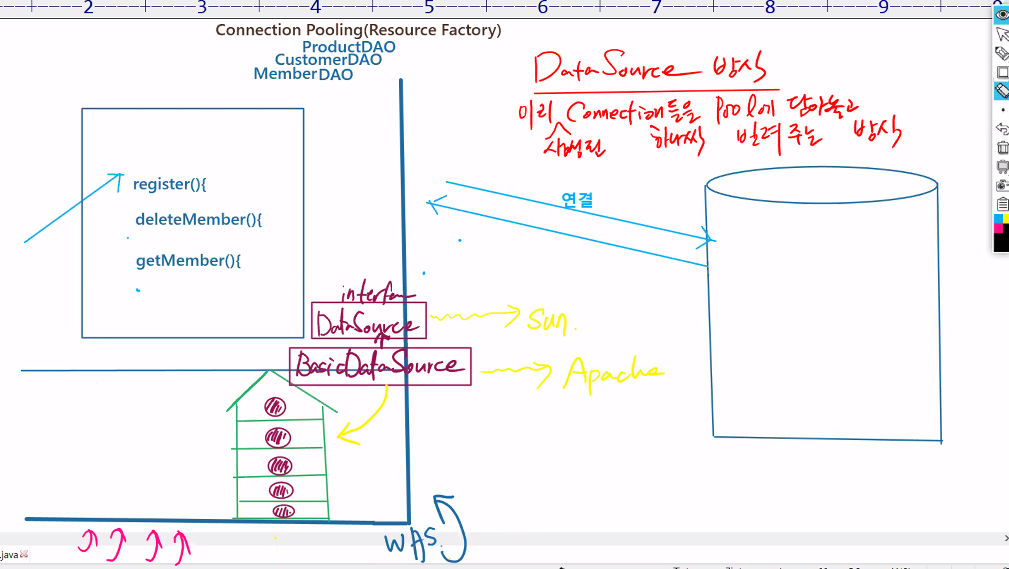 2 3 4 5 6 7 8 9
Connection Pooling(Resource Factory)
ProductDAO
CustomerDAO
MemberDAO
DataSource 방식
미리 Connection들을 Pool에 담아놓고
생성된 하나씩 빌려주는 방식
register(){
deleteMember(){
getMember(){
연결
interface
DataSource
Sun.
BasicDataSource
Apache
WAS.
.java